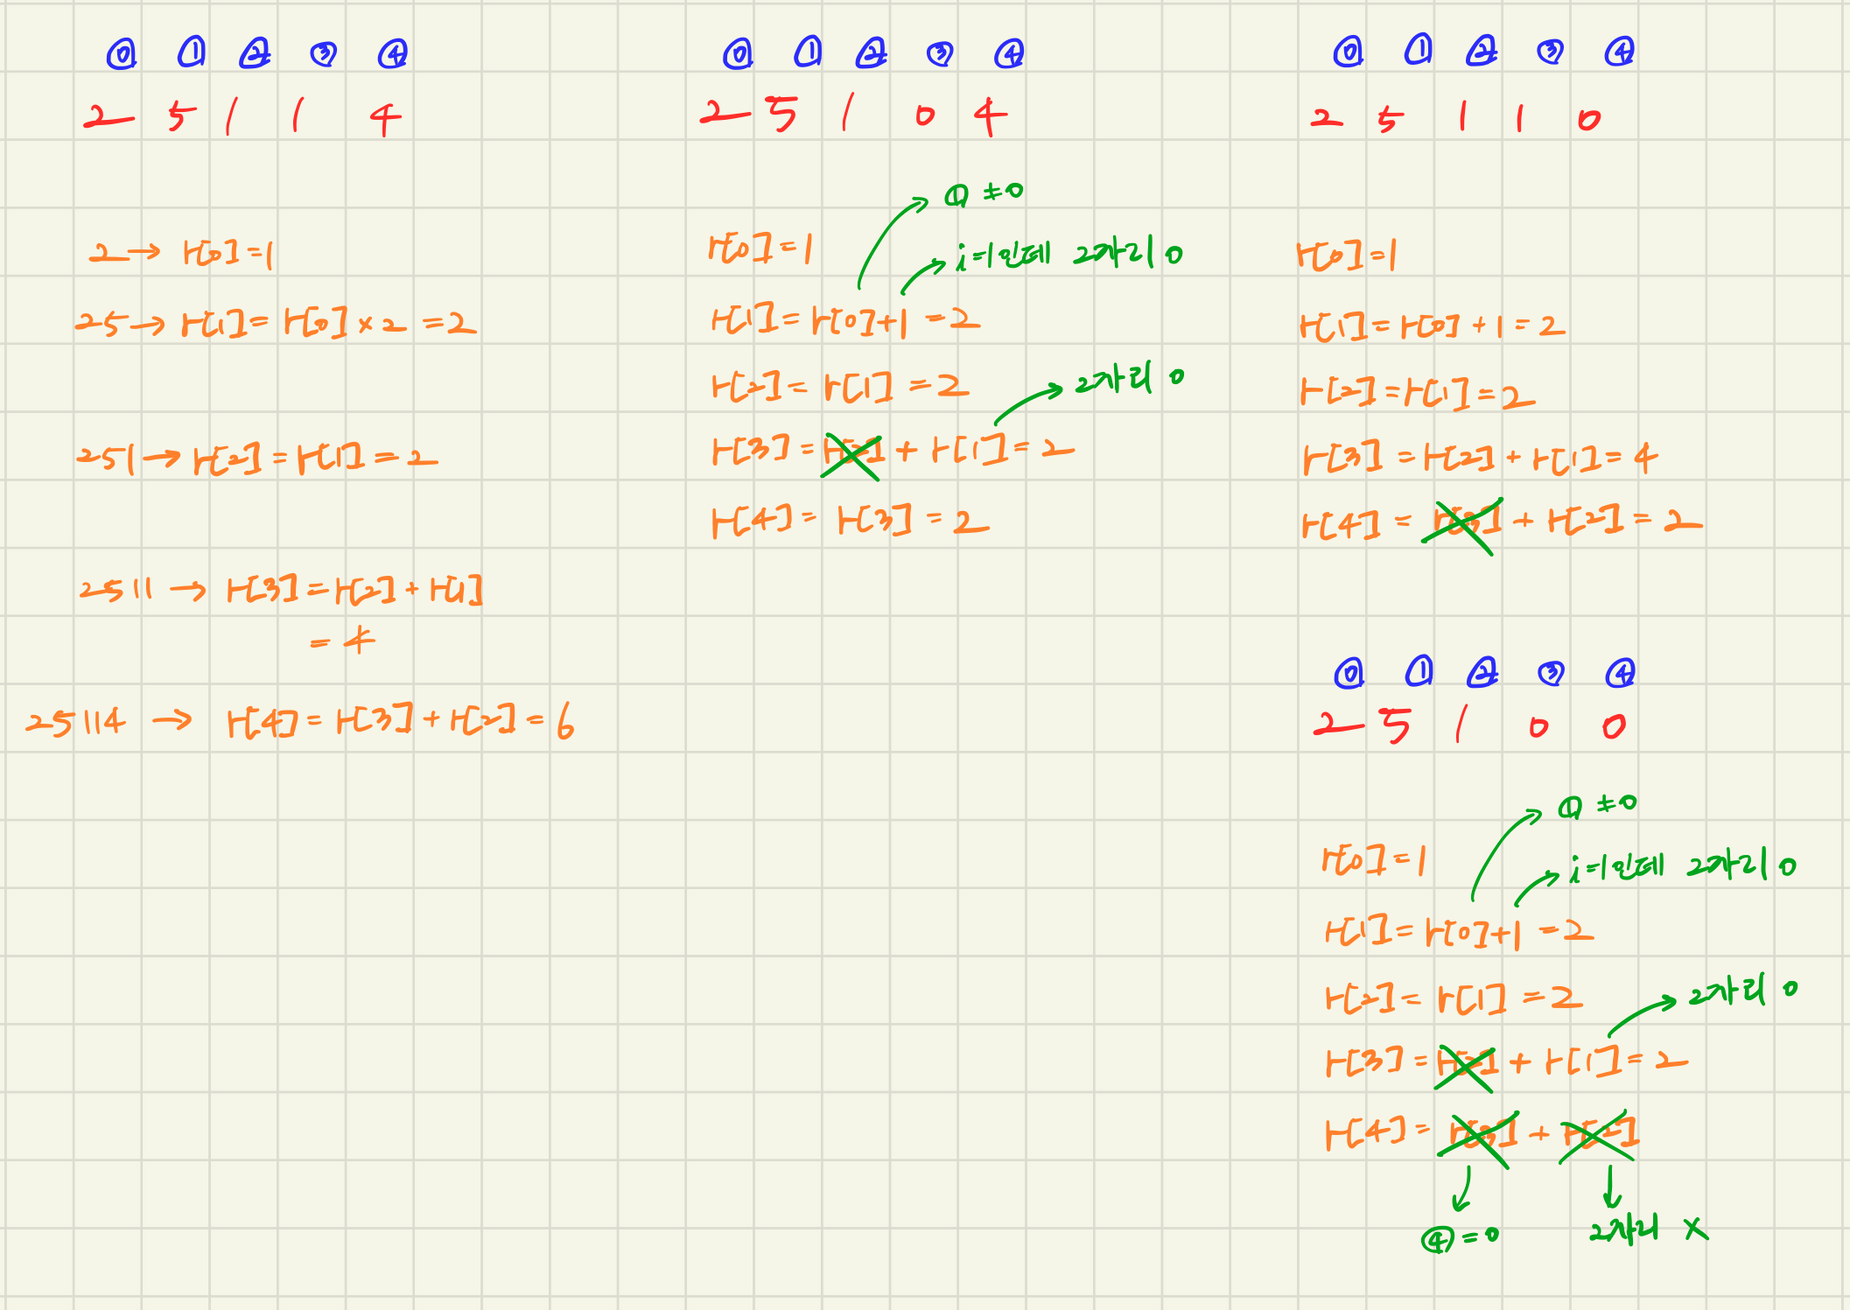 ⓪ ① ② ③ ④
2 5 1 1 4
2 → r[0]=1
25 → r[1]= r[0] × 2 = 2
251 → r[2] = r[1] = 2
2511 → r[3] = r[2] + r[1]
= 4
25114 → r[4] = r[3] + r[2] = 6
⓪ ① ② ③ ④
2 5 1 0 4
① ≠0
r[0] = 1
i=1인데 2자리 0
r[1] = r[0]+1 = 2
r[2] = r[1] = 2
2자리 0
r[3] = r[2] + r[1] = 2
r[4] = r[3] = 2
⓪ ① ② ③ ④
2 5 1 1 0
r[0]=1
r[1] = r[0] + 1 = 2
r[2] = r[1] = 2
r[3] = r[2] + r[1] = 4
r[4] = r[3] + r[2] = 2
⓪ ① ② ③ ④
2 5 1 0 0
① ≠0
r[0] = 1
i=1인데 2자리 0
r[1] = r[0]+1 = 2
r[2] = r[1] = 2
2자리 0
r[3] = r[2] + r[1] = 2
r[4] = r[3] + r[2]
④ = 0
2자리 X